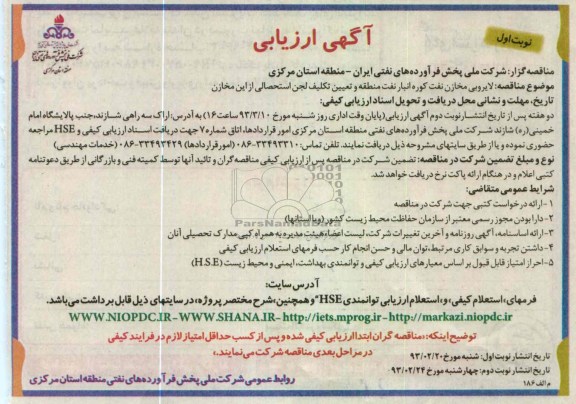 نوبت اول
آگهی ارزیابی
مناقصه گزار: شرکت ملی پخش فرآورده‌های نفتی ایران - منطقه استان مرکزی
موضوع مناقصه: لایروبی مخازن نفت کوره انبار نفت منطقه و تعیین تکلیف لجن استحصالی از این مخازن
تاریخ، مهلت و نشانی محل دریافت و تحویل اسناد ارزیابی کیفی:
دو هفته پس از تاریخ انتشار نوبت دوم آگهی ارزیابی (پایان وقت اداری روز شنبه مورخ ۹۳/۳/۱۰ ساعت ۱۶) به آدرس: اراک سه راهی شازند، جنب پالایشگاه امام
خمینی (ره) شازند شرکت ملی پخش فرآورده‌های نفتی منطقه استان مرکزی امور قراردادها، اتاق شماره ۷ جهت دریافت اسناد ارزیابی کیفی و HSE مراجعه
حضوری نموده و یا از طریق سایتهای مشروحه ذیل دریافت نمایند. تلفن تماس: ۳۳۴۹۳۳۱۰-۰۸۶ (امور قراردادها) ۳۳۴۹۳۴۲۹-۰۸۶ (خدمات مهندسی)
نوع و مبلغ تضمین شرکت در مناقصه: تضمین شرکت در مناقصه پس از ارزیابی کیفی مناقصه گران و تائید آنها توسط کمیته فنی و بازرگانی از طریق دعوتنامه
کتبی اعلام و در هنگام ارائه پاکت نرخ دریافت خواهد شد.
شرایط عمومی متقاضی:
۱-ارائه درخواست کتبی جهت شرکت در مناقصه
۲-دارا بودن مجوز رسمی معتبر از سازمان حفاظت محیط زیست کشور (ویا استانها)
۳-ارائه اساسنامه، آگهی روزنامه و آخرین تغییرات شرکت، لیست اعضاء هیئت مدیره به همراه کپی مدارک تحصیلی آنان
۴-داشتن تجربه و سوابق کاری مرتبط، توان مالی و حسن انجام کار حسب فرمهای استعلام ارزیابی کیفی
۵-احراز امتیاز قابل قبول بر اساس معیارهای ارزیابی کیفی و توانمندی بهداشت، ایمنی و محیط زیست (H.S.E)
آدرس سایت:
فرمهای «استعلام کیفی» و «استعلام ارزیابی توانمندی HSE» و همچنین «شرح مختصر پروژه» در سایتهای ذیل قابل برداشت می‌باشد.
WWW.NIOPDC.IR-WWW.SHANA.IR- http://iets.mprog.ir- http://markazi.niopdc.ir
توضیح اینکه: «مناقصه گران ابتدا ارزیابی کیفی شده و پس از کسب حداقل امتیاز لازم در فرایند کیفی
در مراحل بعدی مناقصه شرکت می‌نمایند.»
تاریخ انتشار نوبت اول: شنبه مورخ ۹۳/۰۲/۲۰
تاریخ انتشار نوبت دوم: چهارشنبه مورخ ۹۳/۰۲/۲۴
م الف ۱۸۶
روابط عمومی شرکت ملی پخش فرآورده‌های نفتی منطقه استان مرکزی